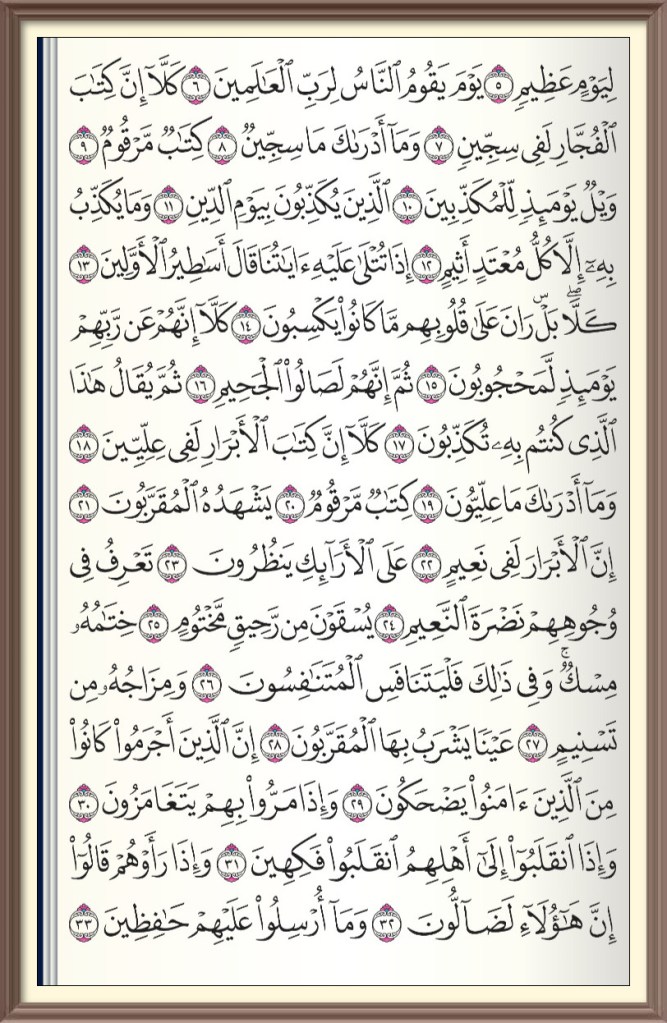 لِيَوْمٍ عَظِيمٍ ٥ يَوْمَ يَقُومُ ٱلنَّاسُ لِرَبِّ ٱلْعَـٰلَمِينَ ٦ كَلَّآ إِنَّ كِتَـٰبَ
ٱلْفُجَّارِ لَفِى سِجِّينٍ ٧ وَمَآ أَدْرَىٰكَ مَا سِجِّينٌ ٨ كِتَـٰبٌ مَّرْقُومٌ ٩
وَيْلٌ يَوْمَئِذٍ لِّلْمُكَذِّبِينَ ١٠ ٱلَّذِينَ يُكَذِّبُونَ بِيَوْمِ ٱلدِّينِ ١١ وَمَا يُكَذِّبُ
بِهِۦٓ إِلَّا كُلُّ مُعْتَدٍ أَثِيمٍ ١٢ إِذَا تُتْلَىٰ عَلَيْهِ ءَايَـٰتُنَا قَالَ أَسَـٰطِيرُ ٱلْأَوَّلِينَ ١٣
كَلَّا ۖ بَلْ ۜ رَانَ عَلَىٰ قُلُوبِهِم مَّا كَانُوا۟ يَكْسِبُونَ ١٤ كَلَّآ إِنَّهُمْ عَن رَّبِّهِمْ
يَوْمَئِذٍ لَّمَحْجُوبُونَ ١٥ ثُمَّ إِنَّهُمْ لَصَالُوا۟ ٱلْجَحِيمِ ١٦ ثُمَّ يُقَالُ هَـٰذَا
ٱلَّذِى كُنتُم بِهِۦ تُكَذِّبُونَ ١٧ كَلَّآ إِنَّ كِتَـٰبَ ٱلْأَبْرَارِ لَفِى عِلِّيِّينَ ١٨
وَمَآ أَدْرَىٰكَ مَا عِلِّيُّونَ ١٩ كِتَـٰبٌ مَّرْقُومٌ ٢٠ يَشْهَدُهُ ٱلْمُقَرَّبُونَ ٢١
إِنَّ ٱلْأَبْرَارَ لَفِى نَعِيمٍ ٢٢ عَلَى ٱلْأَرَآئِكِ يَنظُرُونَ ٢٣ تَعْرِفُ فِى
وُجُوهِهِمْ نَضْرَةَ ٱلنَّعِيمِ ٢٤ يُسْقَوْنَ مِن رَّحِيقٍ مَّخْتُومٍ ٢٥ خِتَـٰمُهُۥ
مِسْكٌ ۚ وَفِى ذَٰلِكَ فَلْيَتَنَافَسِ ٱلْمُتَنَـٰفِسُونَ ٢٦ وَمِزَاجُهُۥ مِن
تَسْنِيمٍ ٢٧ عَيْنًا يَشْرَبُ بِهَا ٱلْمُقَرَّبُونَ ٢٨ إِنَّ ٱلَّذِينَ أَجْرَمُوا۟ كَانُوا۟
مِنَ ٱلَّذِينَ ءَامَنُوا۟ يَضْحَكُونَ ٢٩ وَإِذَا مَرُّوا۟ بِهِمْ يَتَغَامَزُونَ ٣٠
وَإِذَا ٱنقَلَبُوٓا۟ إِلَىٰٓ أَهْلِهِمُ ٱنقَلَبُوا۟ فَكِهِينَ ٣١ وَإِذَا رَأَوْهُمْ قَالُوٓا۟
إِنَّ هَـٰٓؤُلَآءِ لَضَآلُّونَ ٣٢ وَمَآ أُرْسِلُوا۟ عَلَيْهِمْ حَـٰفِظِينَ ٣٣